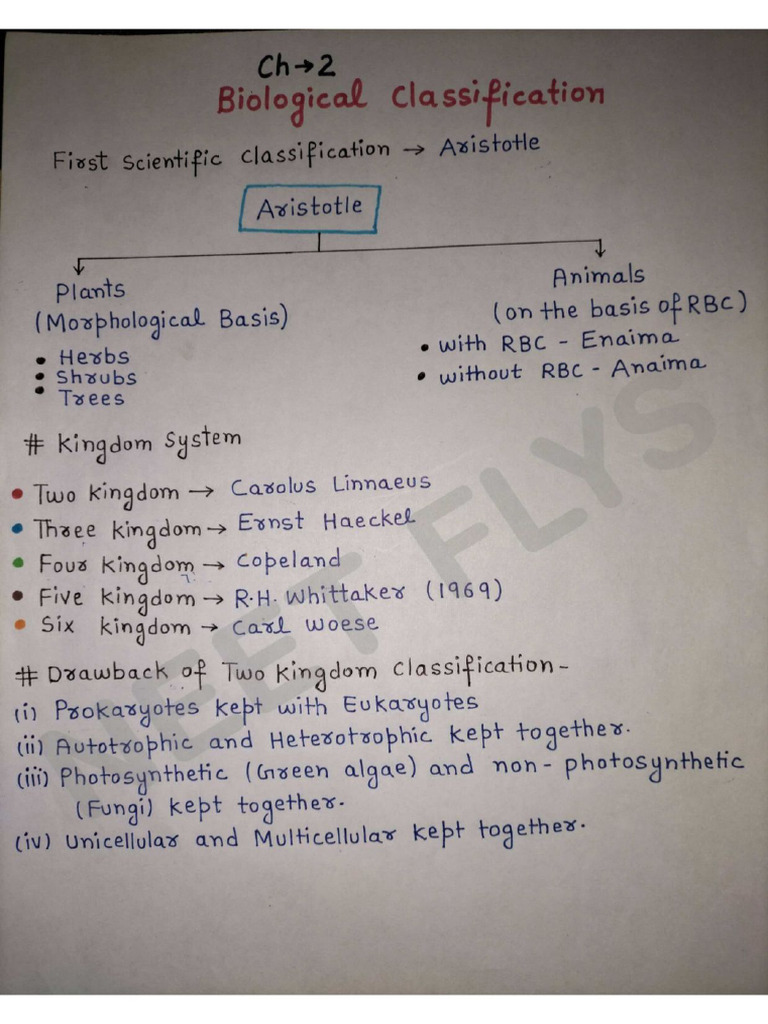 Ch→2
Biological Classification
First Scientific Classification → Aristotle
Aristotle
Plants
(Morphological Basis)
• Herbs
• Shrubs
• Trees
Animals
(on the basis of RBC)
• with RBC - Enaima
• without RBC - Anaima
# Kingdom System
• Two kingdom → Carolus Linnaeus
• Three kingdom → Ernst Haeckel
• Four kingdom → Copeland
• Five kingdom → R.H. Whittaker (1969)
• Six kingdom → Carl Woese
# Drawback of Two Kingdom Classification-
(i) Prokaryotes kept with Eukaryotes
(ii) Autotrophic and Heterotrophic kept together.
(iii) Photosynthetic (Green algae) and non-photosynthetic
(Fungi) kept together.
(iv) Unicellular and Multicellular kept together.
NEET FLYS